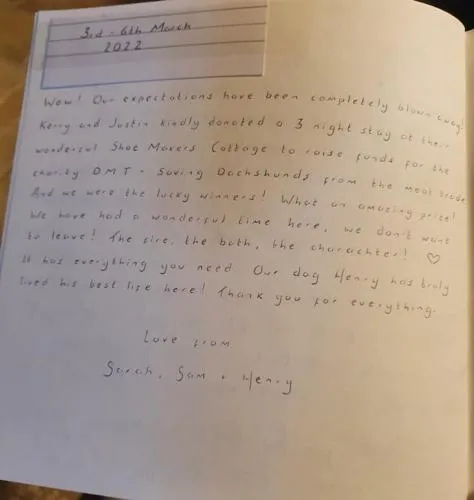 3rd - 6th March
2022
Wow! Our expectations have been completely blown away!
Kerry and Justin kindly donated a 3 night stay at their
wonderful Shoe Makers Cottage to raise funds for the
charity DMT - Saving Dachshunds from the meat trade
And we were the lucky winners! What an amazing prize!
We have had a wonderful time here, we don't want
to leave! The fire, the bath, the charachter! ♡
It has everything you need Our dog Henry has truly
lived his best life here! Thank you for everything.
Love from
Sarah, Sam + Henry